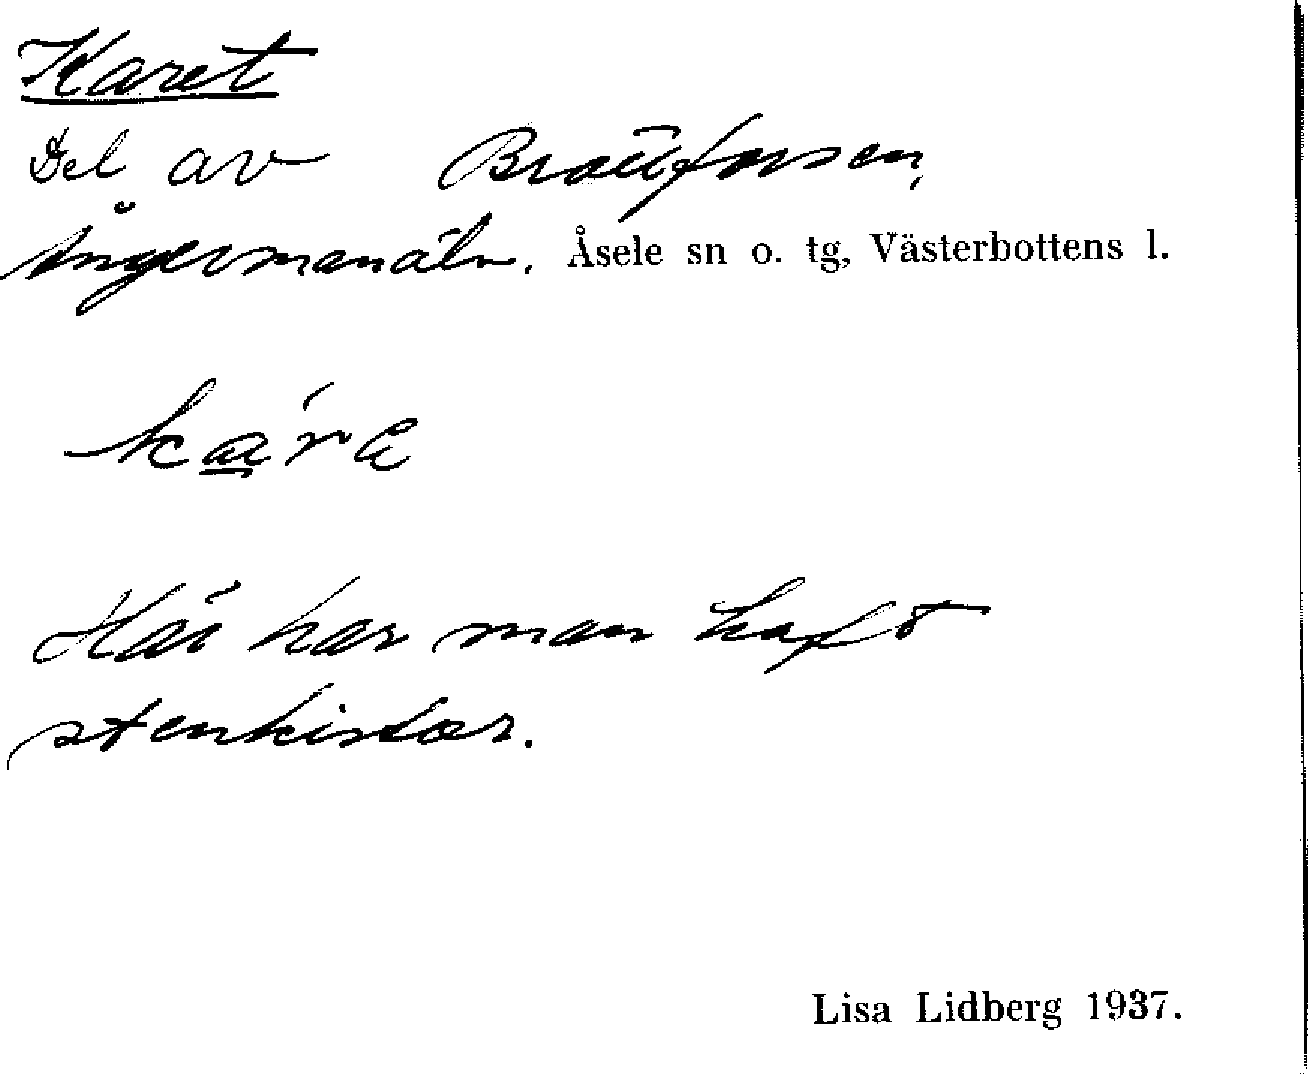 Karet
Del av Brattforsen,
Ångermanälv. Åsele sn o. tg, Västerbottens l.
ka're
Här har man haft
stenkistor.
Lisa Lidberg 1937.